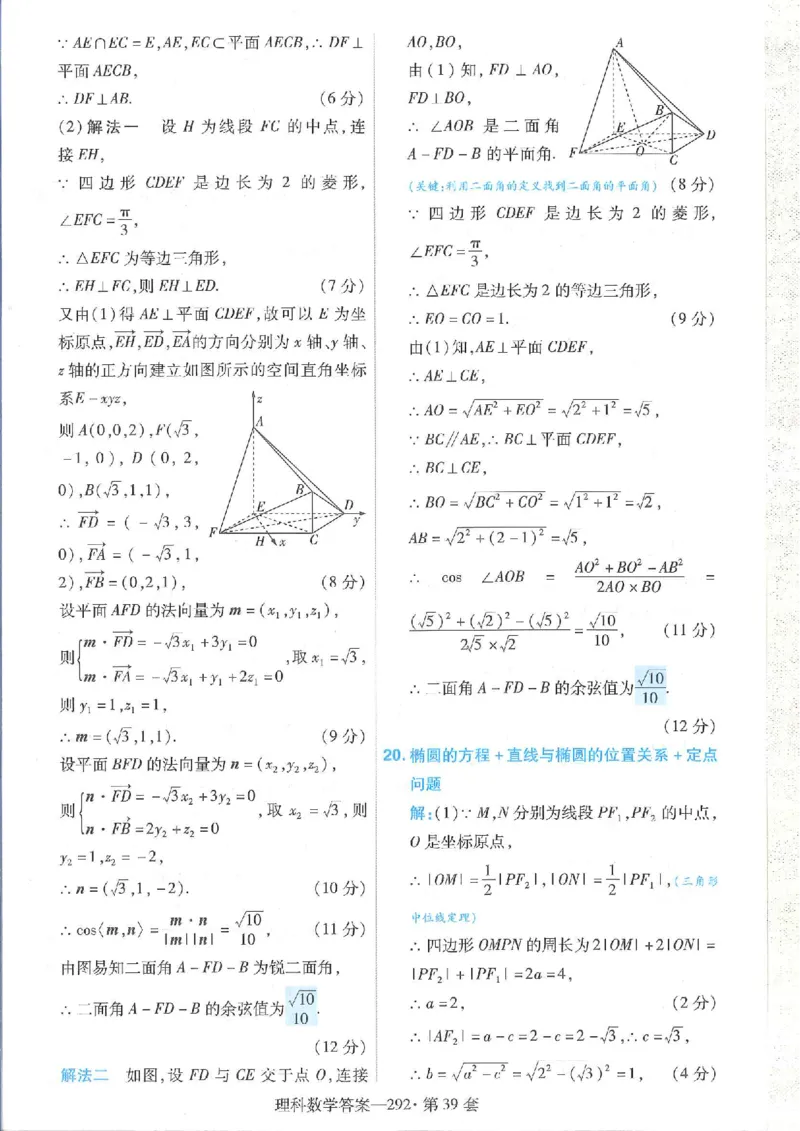 ∵ AE∩EC=E,AE,EC⊂平面 AECB,∴ DF⊥
平面 AECB,
∴ DF⊥AB. (6分)
(2)解法一 设 H 为线段 FC 的中点,连
接 EH,
∵ 四边形 CDEF 是边长为 2 的菱形,
∠EFC=π/3,
∴ △EFC 为等边三角形,
∴ EH⊥FC,则 EH⊥ED. (7分)
又由(1)得 AE⊥平面 CDEF,故可以 E 为坐
标原点,EH→,ED→,EA→的方向分别为 x 轴、y 轴、
z 轴的正方向建立如图所示的空间直角坐标
系E-xyz,
则 A(0,0,2),F(√3,
-1,0),D(0,2,
0),B(√3,1,1),
∴ FD→=(-√3,3,
0),FA→=(-√3,1,
2),FB→=(0,2,1), (8分)
z
A
B
E
D
y
F
H
x
C
设平面 AFD 的法向量为 m=(x₁,y₁,z₁),
则{m·FD→=-√3x₁+3y₁=0
m·FA→=-√3x₁+y₁+2z₁=0 ,取 x₁=√3,
则 y₁=1,z₁=1,
∴ m=(√3,1,1). (9分)
设平面 BFD 的法向量为 n=(x₂,y₂,z₂),
则{n·FD→=-√3x₂+3y₂=0
n·FB→=2y₂+z₂=0 ,取 x₂=√3,则
y₂=1,z₂=-2,
∴ n=(√3,1,-2). (10分)
∴ cos⟨m,n⟩=m·n/|m||n|=√10/10, (11分)
由图易知二面角 A-FD-B 为锐二面角,
∴ 二面角 A-FD-B 的余弦值为√10/10.
(12分)
解法二 如图,设 FD 与 CE 交于点 O,连接
AO,BO,
由(1)知,FD⊥AO,
FD⊥BO,
∴ ∠AOB 是二面角
A-FD-B 的平面角.
A
B
E
D
F
O
C
(关键:利用二面角的定义找到二面角的平面角) (8分)
∵ 四边形 CDEF 是边长为 2 的菱形,
∠EFC=π/3,
∴ △EFC 是边长为 2 的等边三角形,
∴ EO=CO=1. (9分)
由(1)知,AE⊥平面 CDEF,
∴ AE⊥CE,
∴ AO=√(AE²+EO²)=√(2²+1²)=√5,
∵ BC∥AE,∴ BC⊥平面 CDEF,
∴ BC⊥CE,
∴ BO=√(BC²+CO²)=√(1²+1²)=√2,
AB=√(2²+(2-1)²)=√5,
∴ cos ∠AOB = (AO²+BO²-AB²)/(2AO×BO) =
((√5)²+(√2)²-(√5)²)/(2√5×√2)=√10/10, (11分)
∴ 二面角 A-FD-B 的余弦值为√10/10.
(12分)
20. 椭圆的方程+直线与椭圆的位置关系+定点
问题
解:(1)∵ M,N 分别为线段 PF₁,PF₂ 的中点,
O 是坐标原点,
∴ |OM|=1/2|PF₂|,|ON|=1/2|PF₁|,(三角形
中位线定理)
∴ 四边形 OMPN 的周长为2|OM|+2|ON|=
|PF₂|+|PF₁|=2a=4,
∴ a=2, (2分)
∴ |AF₂|=a-c=2-c=2-√3,∴ c=√3,
∴ b=√(a²-c²)=√(2²-(√3)²)=1, (4分)
理科数学答案—292·第 39 套